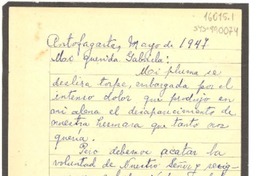 16015.1
Antofagasta, Mayo de 1947
Mi querida Gabriela:
Mi pluma se
desliza torpe, embargada por el
intenso dolor que produjo en
mi alma el desaparecimiento de
nuestra hermana que tanto nos
quería.
Pero debemos acatar la
voluntad de Nuestro Señor y